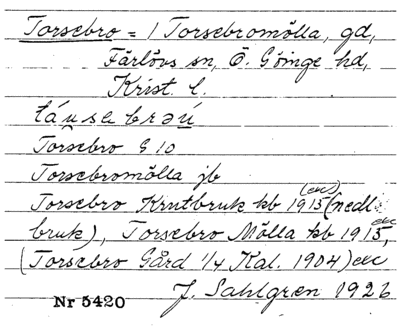 Torsebro = 1 Torsebromölla, gd,
Färlövs sn, Ö. Göinge hd,
Krist. l.
táusebrəú
Torsebro G 10
Torsebromölla jb
Torsebro Krutbruk kb 1915 (etc) (nedl.
bruk), Torsebro Mölla kb 1915, etc
(Torsebro Gård 1/4 Kal. 1904) etc
Nr 5420 J. Sahlgren 1926